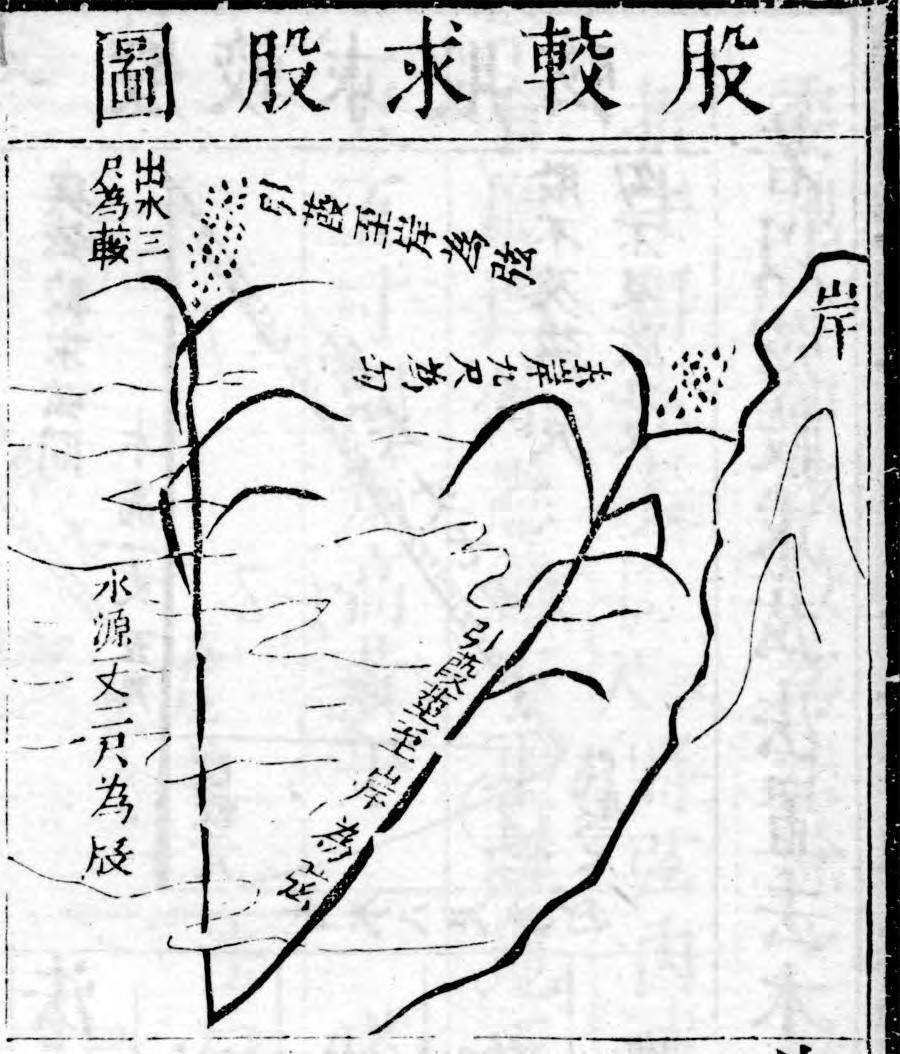 股較求股圖
岸
引葭至岸為弦
出水三
尺為較
去岸九尺為勾
引葭至岸為弦
水源一丈二尺為股